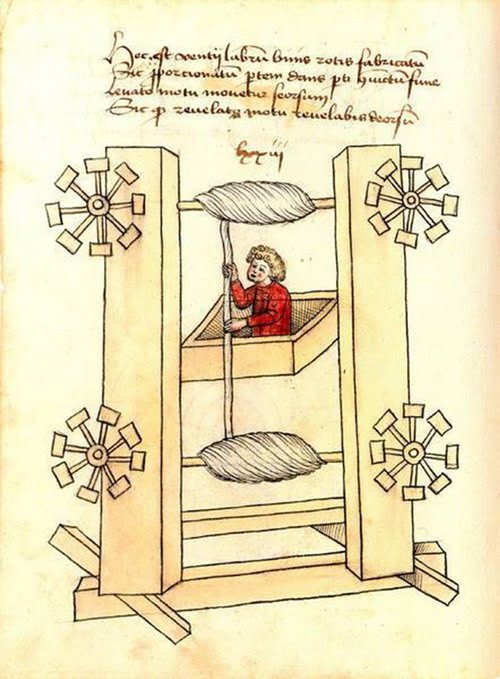 Hec est ventij labrū binis rotis fabricatū
Sic proporcionatū ptem dans pti iūctū fune
levato motu movetur seorsum
Sic qz revelatqz motu revelabis deorsū
lxxiii